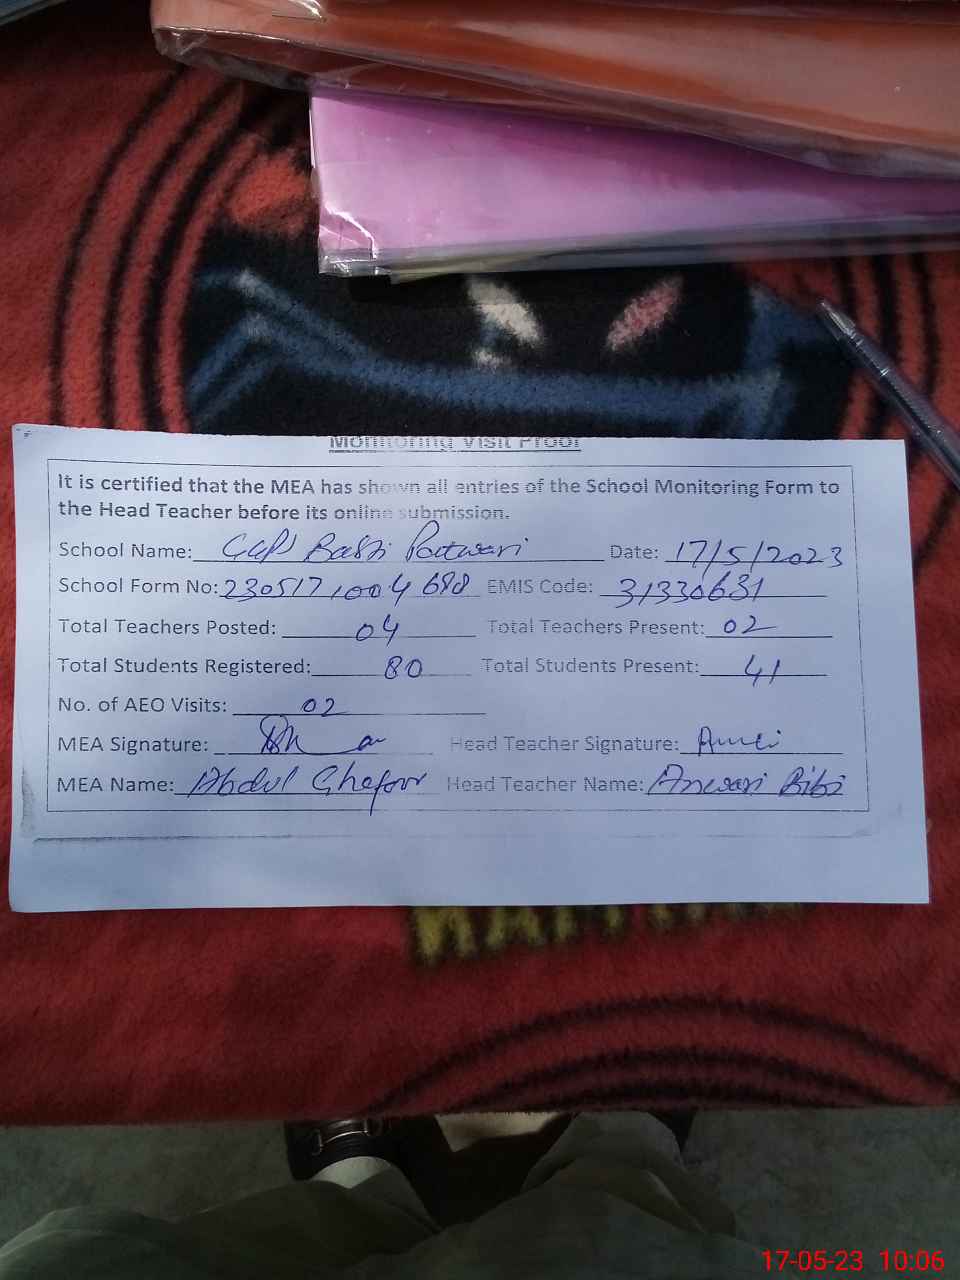 Monitoring Visit Proof
It is certified that the MEA has shown all entries of the School Monitoring Form to
the Head Teacher before its online submission.
School Name: GGPS Basti Patwari Date: 17/5/2023
School Form No: 230517 1004 698 EMIS Code: 31330631
Total Teachers Posted: 04 Total Teachers Present: 02
Total Students Registered: 80 Total Students Present: 41
No. of AEO Visits: 02
MEA Signature: Head Teacher Signature:
MEA Name: Abdul Ghafoor Head Teacher Name: Anwari Bibi
17-05-23 10:06